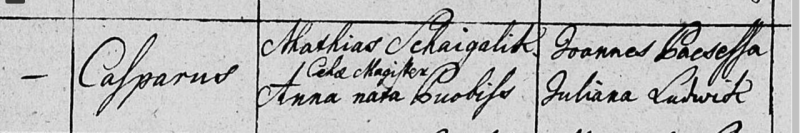 – Casparus
Mathias Schaigalik
Cehæ Magister
Anna nata Quobiss
Joannes Paesessa
Juliana Ludwik